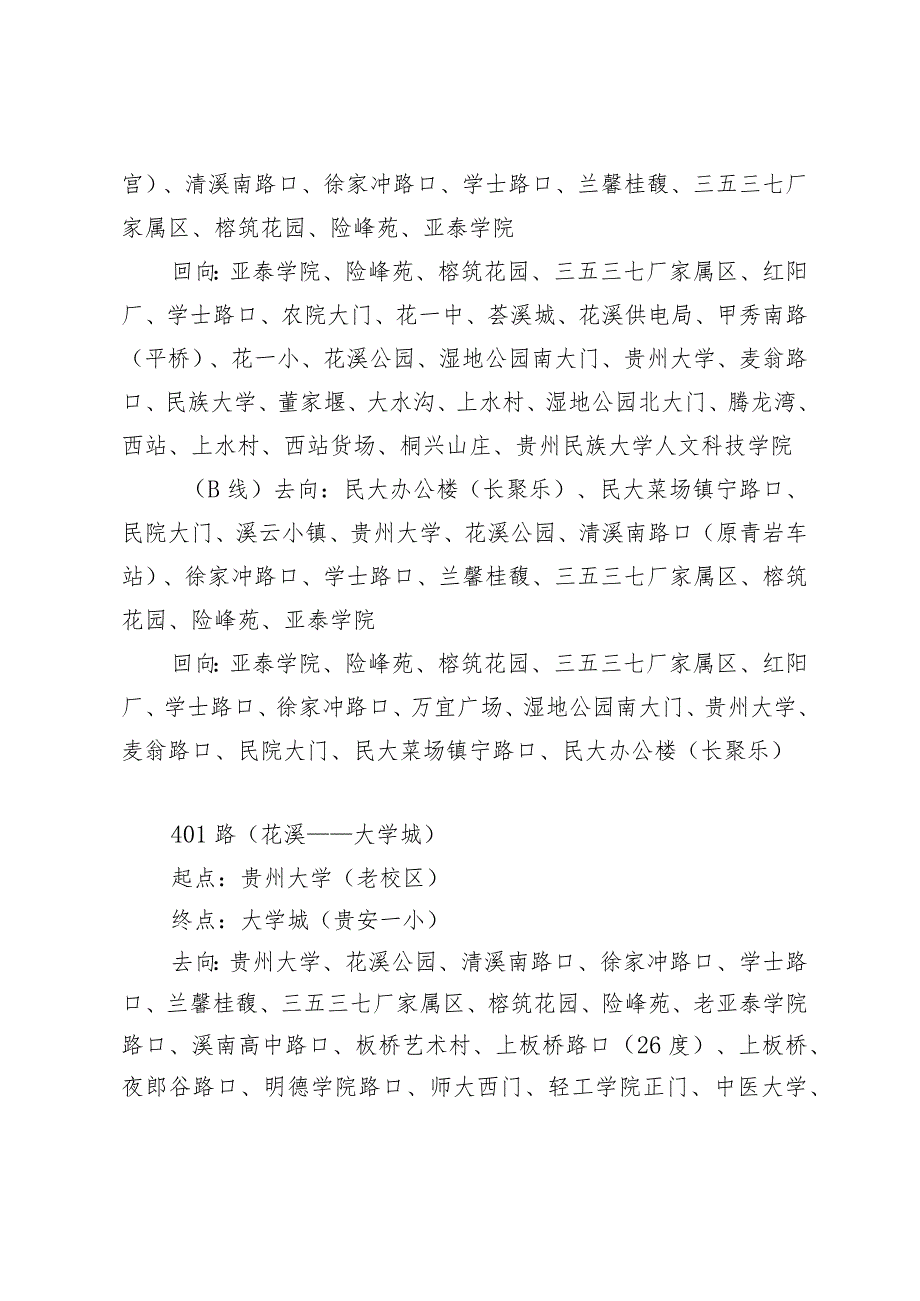 宫)、清溪南路口、徐家冲路口、学士路口、兰馨桂馥、三五三七厂
家属区、榕筑花园、险峰苑、亚泰学院
回向:亚泰学院、险峰苑、榕筑花园、三五三七厂家属区、红阳
厂、学士路口、农院大门、花一中、荟溪城、花溪供电局、甲秀南路
(平桥)、花一小、花溪公园、湿地公园南大门、贵州大学、麦翁路
口、民族大学、董家堰、大水沟、上水村、湿地公园北大门、腾龙湾、
西站、上水村、西站货场、桐兴山庄、贵州民族大学人文科技学院
(B 线)去向:民大办公楼(长聚乐)、民大菜场镇宁路口、
民院大门、溪云小镇、贵州大学、花溪公园、清溪南路口(原青岩车
站)、徐家冲路口、学士路口、兰馨桂馥、三五三七厂家属区、榕筑
花园、险峰苑、亚泰学院
回向:亚泰学院、险峰苑、榕筑花园、三五三七厂家属区、红阳
厂、学士路口、徐家冲路口、万宜广场、湿地公园南大门、贵州大学、
麦翁路口、民院大门、民大菜场镇宁路口、民大办公楼(长聚乐)
401 路(花溪——大学城)
起点:贵州大学(老校区)
终点:大学城(贵安一小)
去向:贵州大学、花溪公园、清溪南路口、徐家冲路口、学士路
口、兰馨桂馥、三五三七厂家属区、榕筑花园、险峰苑、老亚泰学院
路口、溪南高中路口、板桥艺术村、上板桥路口(26 度)、上板桥、
夜郎谷路口、明德学院路口、师大西门、轻工学院正门、中医大学、